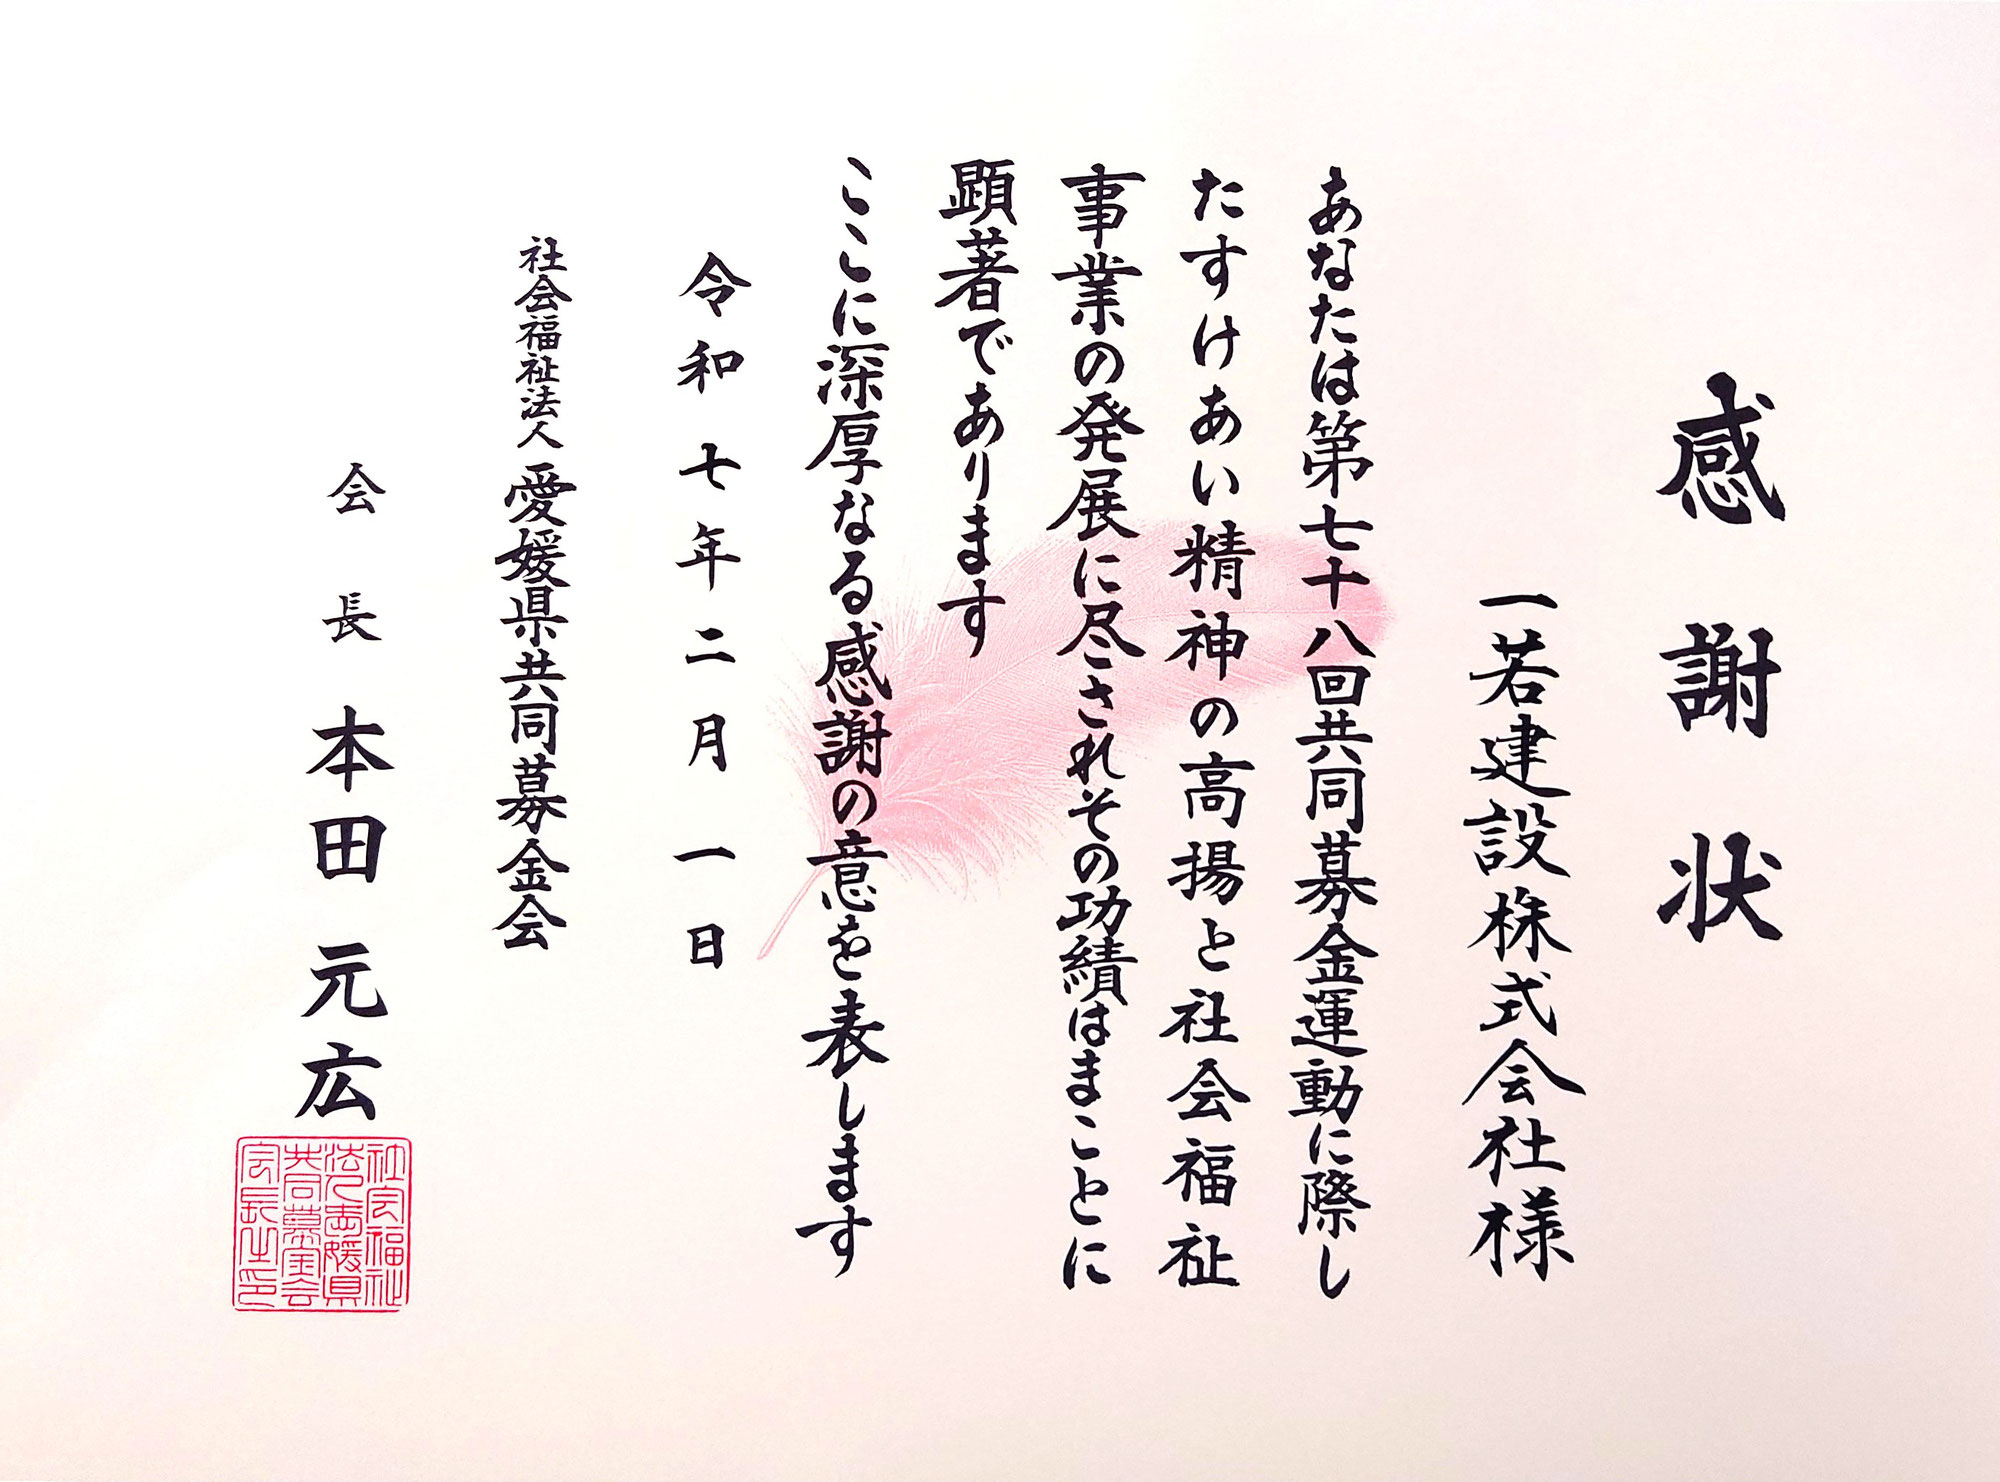 感謝状
一若建設株式会社様
あなたは第七十八回共同募金運動に際し
たすけあい精神の高揚と社会福祉
事業の発展に尽されその功績はまことに
顕著であります
ここに深厚なる感謝の意を表します
令和七年二月一日
社会福祉法人 愛媛県共同募金会
会長 本田元広
社会福祉
法人愛媛県
共同募金会
会長之印